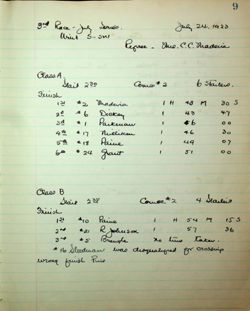 9
3rd Race - July Series. July 24, 1933
Wind S-SW
- Mrs. C.C.
Class A
Start 2 Course #2 6 Starters
Finish
1st #2 1 H 43 M 30 S
2nd #6 Dockay 1 43 47
3rd #1 Parkman 1 46 00
4th #17 1 46 30
5th #18 Paine 1 49 07
6th #24 Grant 1 51 00
Class B
Start 2 Course #2 4 Starters
Finish
1st #10 Paine 1 H 54 M 15 S
2nd #21 R Johnson 1 57 36
3rd #5 no time taken.
#16 Steadman was disqualified for crossing
wrong finish line